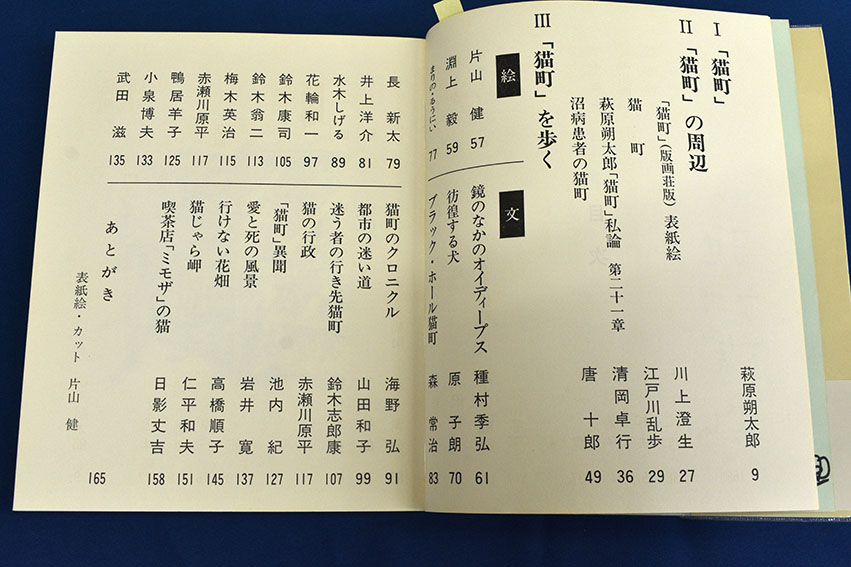 Ⅰ 「猫町」 萩原朔太郎 9
Ⅱ 「猫町」の周辺
「猫町」(版画荘版)表紙絵 川上澄生 27
猫町 江戸川乱歩 29
萩原朔太郎「猫町」私論 第二十一章 清岡卓行 36
沼病患者の猫町 唐 十郎 49
Ⅲ 「猫町」を歩く
絵
片山 健 57
淵上 毅 59
まりの・るうにい 77
長 新太 79
井上洋介 81
水木しげる 89
花輪和一 97
鈴木康司 105
鈴木翁二 113
梅木英治 115
赤瀬川原平 117
鴨居羊子 125
小泉博夫 133
武田 滋 135
文
鏡のなかのオイディープス 種村季弘 61
彷徨する犬 原 子朗 70
ブラック・ホール猫町 森 常治 83
猫町のクロニクル 海野 弘 91
都市の迷い道 山田和子 99
迷う者の行き先猫町 鈴木志郎康 107
猫の行政 赤瀬川原平 117
「猫町」異聞 池内 紀 127
愛と死の風景 岩井 寛 137
行けない花畑 高橋順子 145
猫じゃら岬 仁平和夫 151
喫茶店「ミモザ」の猫 日影丈吉 158
あとがき 165
表紙絵・カット 片山 健